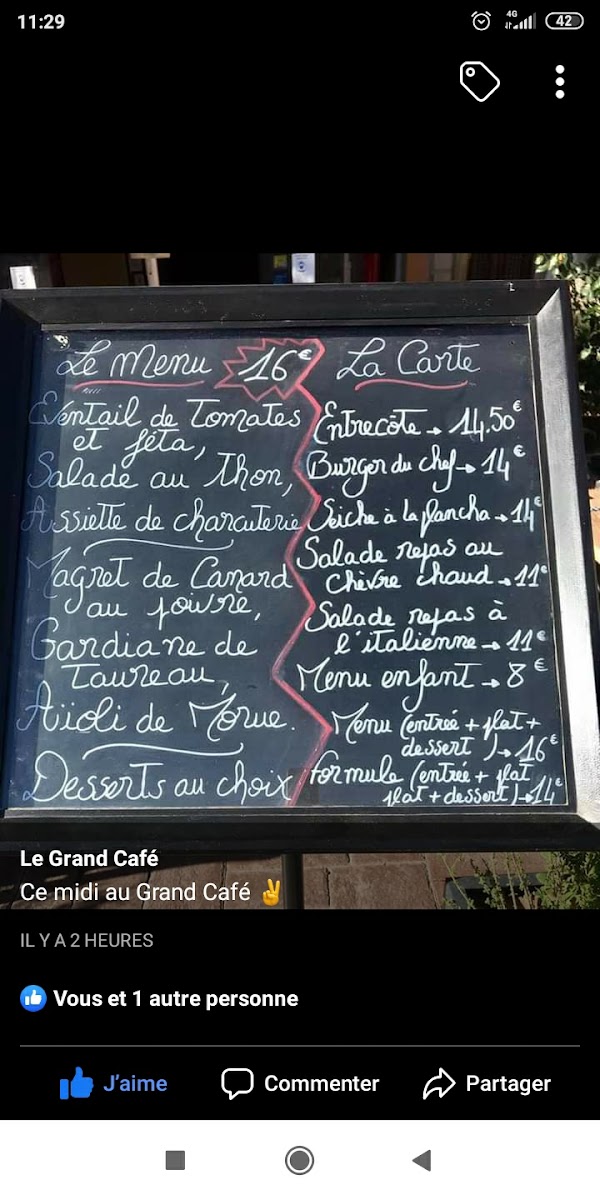 11:29
4G
42
Le Menu 16€
Eventail de Tomates
et féta,
Salade au Thon,
Assiette de charcuterie
Magret de Canard
au poivre,
Gardiane de
Taureau,
Aïoli de Morue.
Desserts au choix
La Carte
Entrecôte → 14.50€
Burger du chef → 14€
Seiche à la plancha → 14€
Salade repas au
Chèvre chaud → 11€
Salade repas à
l'italienne → 11€
Menu enfant → 8€
Menu (entrée + plat +
dessert) → 16€
formule (entrée + plat
plat + dessert) → 14€
Le Grand Café
Ce midi au Grand Café ✌
IL Y A 2 HEURES
Vous et 1 autre personne
J'aime
Commenter
Partager